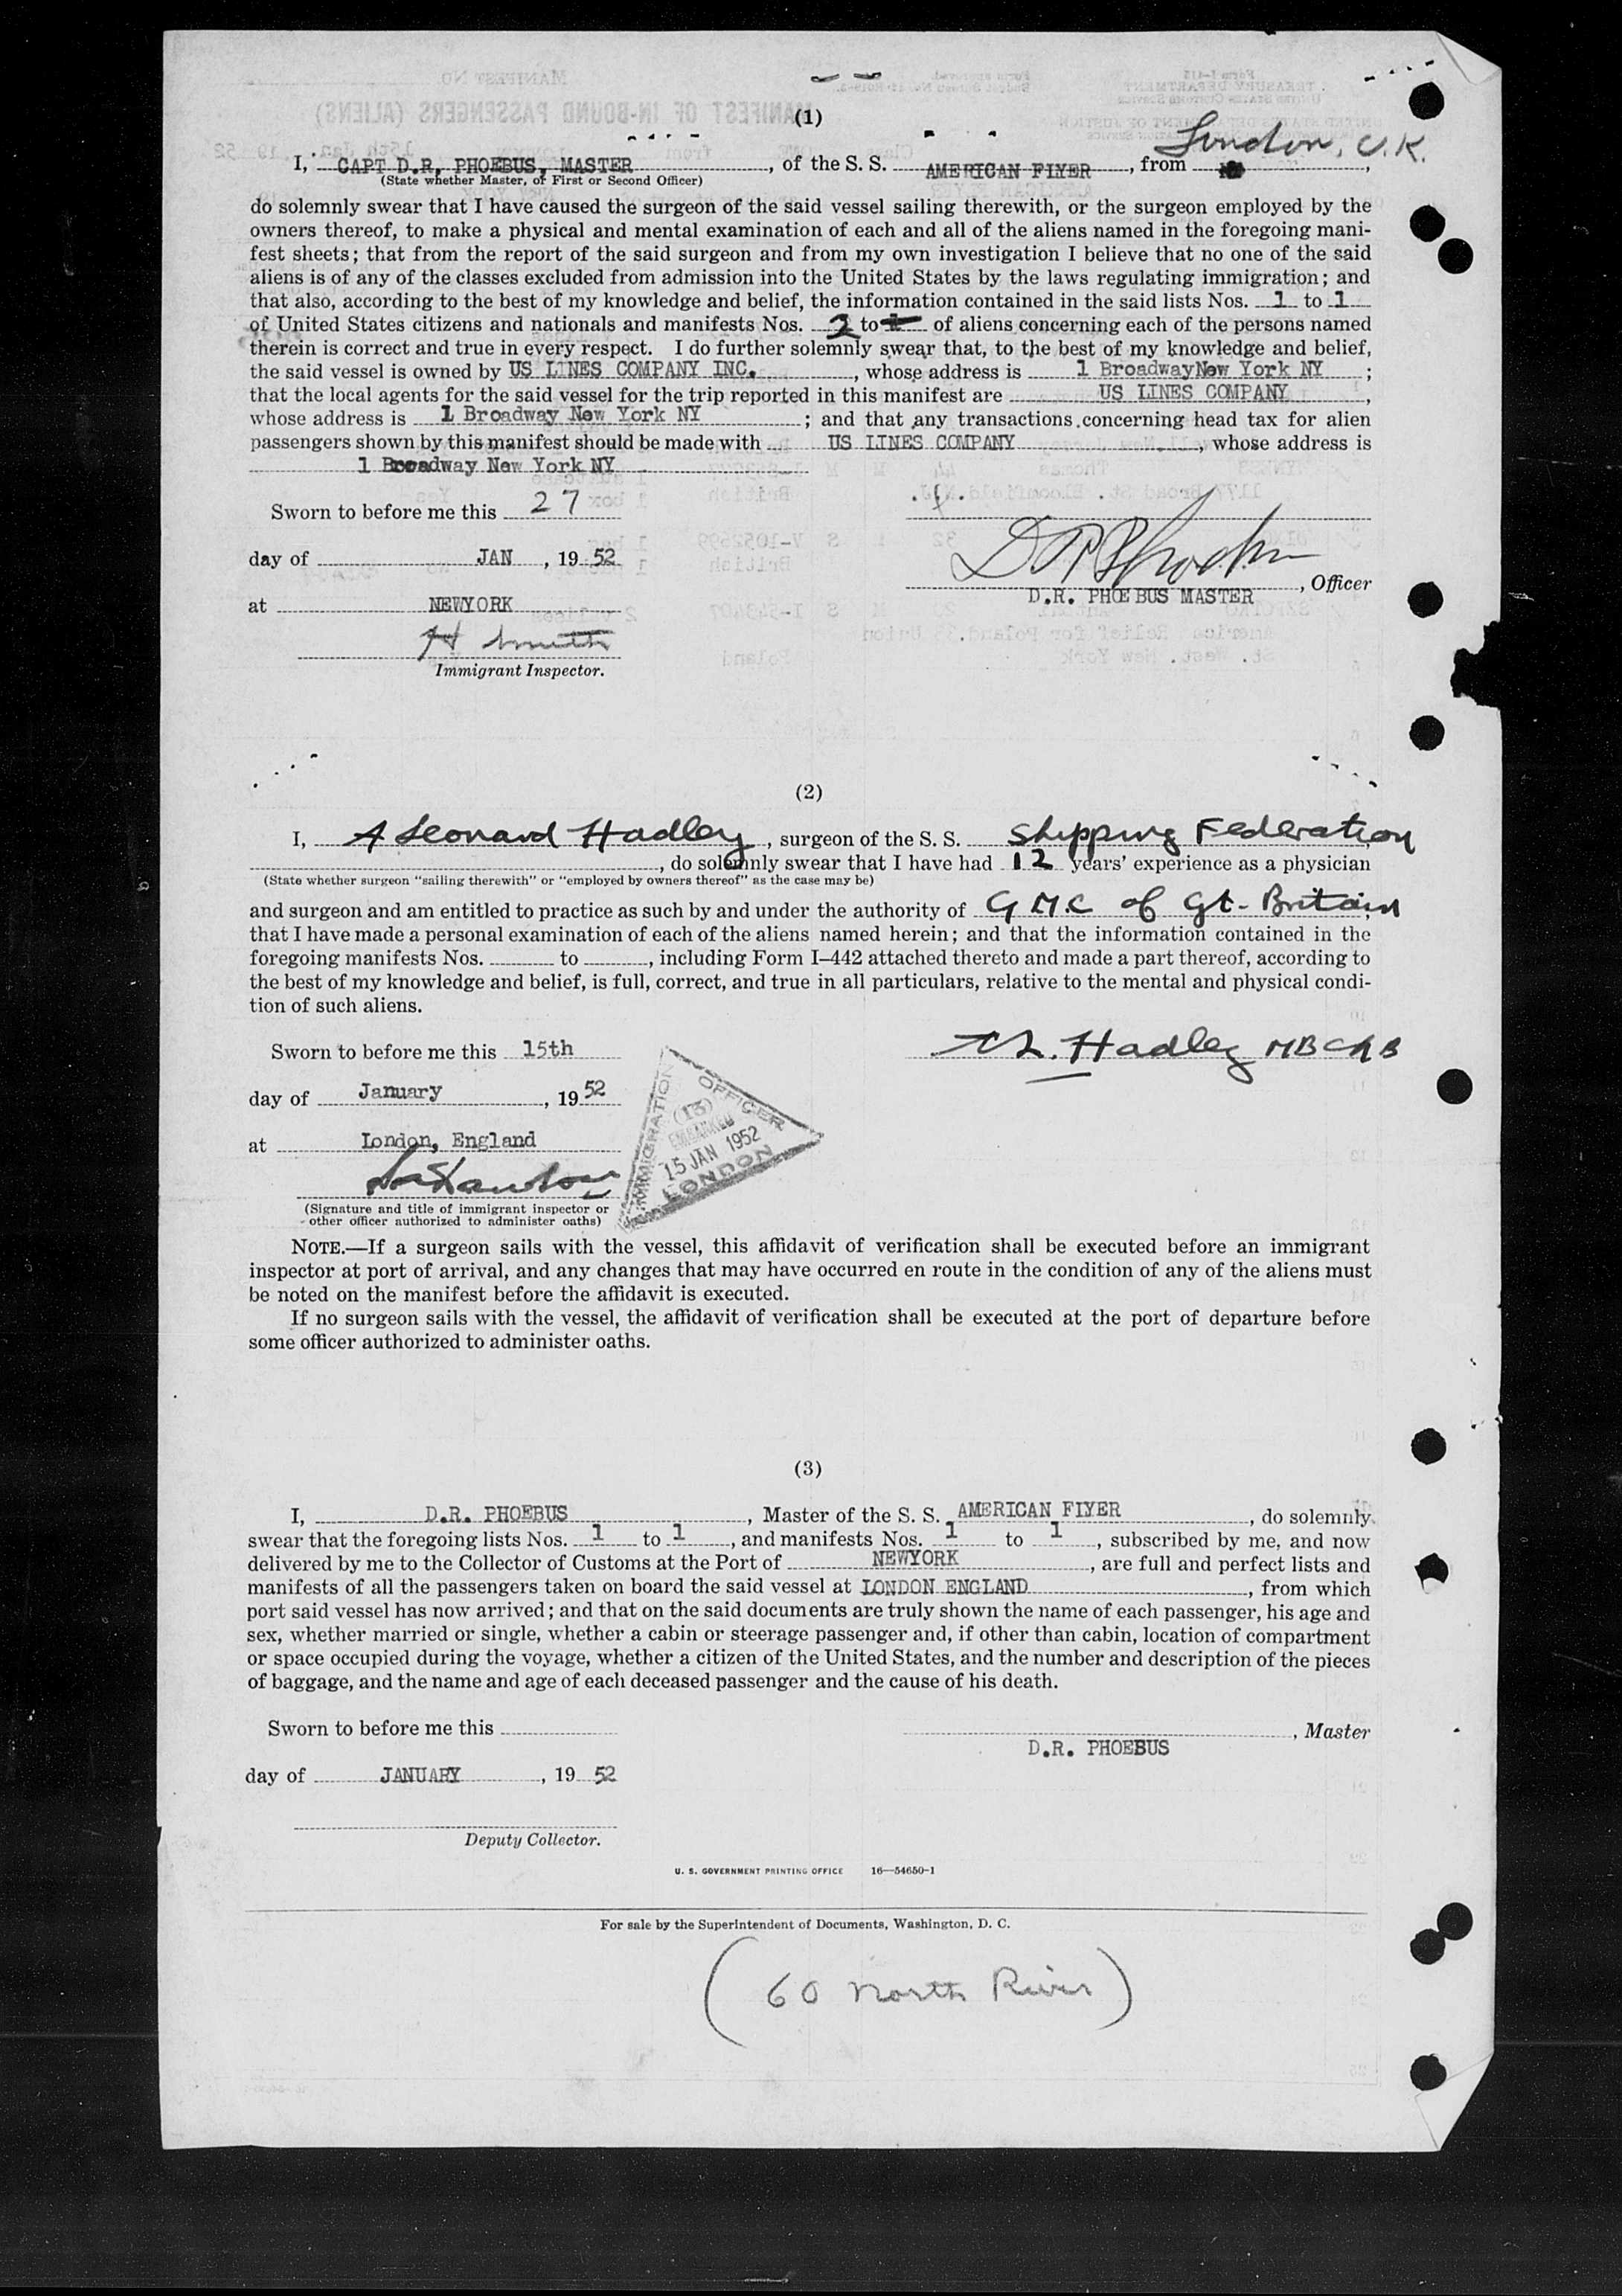 (1)
I, CAPT D.R. PHOEBUS, MASTER, of the S. S. AMERICAN FLYER, from London, U.K.,
(State whether Master, or First or Second Officer)
do solemnly swear that I have caused the surgeon of the said vessel sailing therewith, or the surgeon employed by the
owners thereof, to make a physical and mental examination of each and all of the aliens named in the foregoing mani-
fest sheets; that from the report of the said surgeon and from my own investigation I believe that no one of the said
aliens is of any of the classes excluded from admission into the United States by the laws regulating immigration; and
that also, according to the best of my knowledge and belief, the information contained in the said lists Nos. 1 to 1
of United States citizens and nationals and manifests Nos. 2 to of aliens concerning each of the persons named
therein is correct and true in every respect. I do further solemnly swear that, to the best of my knowledge and belief,
the said vessel is owned by US LINES COMPANY INC., whose address is 1 BroadwayNew York NY;
that the local agents for the said vessel for the trip reported in this manifest are US LINES COMPANY,
whose address is 1 Broadway New York NY; and that any transactions concerning head tax for alien
passengers shown by this manifest should be made with US LINES COMPANY, whose address is
1 Broadway New York NY
Sworn to before me this 27
day of JAN, 19 52
D R Phoebus, Officer
D.R. PHOEBUS MASTER
at NEWYORK
H Smith
Immigrant Inspector.
(2)
I, A Leonard Hadley, surgeon of the S. S. Shipping Federation
, do solemnly swear that I have had 12 years' experience as a physician
(State whether surgeon "sailing therewith" or "employed by owners thereof" as the case may be)
and surgeon and am entitled to practice as such by and under the authority of G M.C of Gt. Britain
that I have made a personal examination of each of the aliens named herein; and that the information contained in the
foregoing manifests Nos. to , including Form I–442 attached thereto and made a part thereof, according to
the best of my knowledge and belief, is full, correct, and true in all particulars, relative to the mental and physical condi-
tion of such aliens.
Sworn to before me this 15th
A L. Hadley MB Ch B
day of January, 19 52
at London, England
IMMIGRATION OFFICER
(13)
EMBARKED
15 JAN 1952
LONDON
(Signature and title of immigrant inspector or
other officer authorized to administer oaths)
NOTE.—If a surgeon sails with the vessel, this affidavit of verification shall be executed before an immigrant
inspector at port of arrival, and any changes that may have occurred en route in the condition of any of the aliens must
be noted on the manifest before the affidavit is executed.
If no surgeon sails with the vessel, the affidavit of verification shall be executed at the port of departure before
some officer authorized to administer oaths.
(3)
I, D.R. PHOEBUS, Master of the S. S. AMERICAN FLYER, do solemnly
swear that the foregoing lists Nos. 1 to 1, and manifests Nos. 1 to 1, subscribed by me, and now
delivered by me to the Collector of Customs at the Port of NEWYORK, are full and perfect lists and
manifests of all the passengers taken on board the said vessel at LONDON ENGLAND, from which
port said vessel has now arrived; and that on the said documents are truly shown the name of each passenger, his age and
sex, whether married or single, whether a cabin or steerage passenger and, if other than cabin, location of compartment
or space occupied during the voyage, whether a citizen of the United States, and the number and description of the pieces
of baggage, and the name and age of each deceased passenger and the cause of his death.
Sworn to before me this
, Master
D.R. PHOEBUS
day of JANUARY, 19 52
Deputy Collector.
U. S. GOVERNMENT PRINTING OFFICE 16—54650-1
For sale by the Superintendent of Documents, Washington, D. C.
(60 North River)